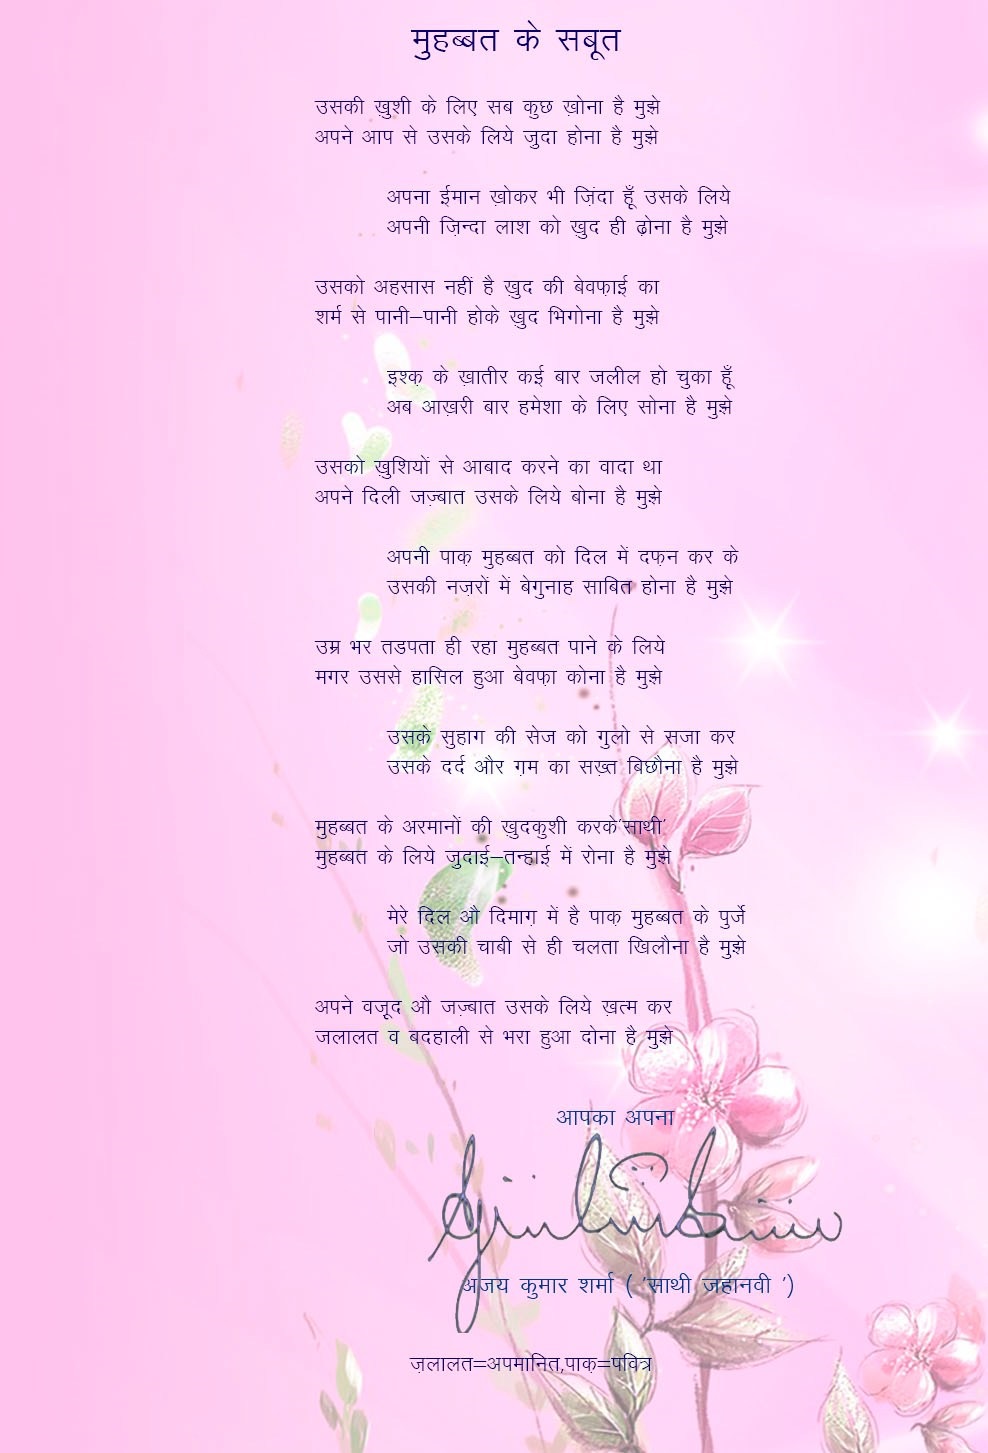 मुहब्बत के सबूत
उसकी ख़ुशी के लिए सब कुछ ख़ोना है मुझे
अपने आप से उसके लिये जुदा होना है मुझे
अपना ईमान ख़ोकर भी ज़िंदा हूँ उसके लिये
अपनी ज़िन्दा लाश को ख़ुद ही ढ़ोना है मुझे
उसको अहसास नहीं है ख़ुद की बेवफ़ाई का
शर्म से पानी–पानी होके ख़ुद भिगोना है मुझे
इश्क़ के ख़ातीर कई बार जलील हो चुका हूँ
अब आख़री बार हमेशा के लिए सोना है मुझे
उसको ख़ुशियों से आबाद करने का वादा था
अपने दिली जज़्बात उसके लिये बोना है मुझे
अपनी पाक़ मुहब्बत को दिल में दफ़न कर के
उसकी नज़रों में बेगुनाह साबित होना है मुझे
उम्र भर तडपता ही रहा मुहब्बत पाने के लिये
मगर उससे हासिल हुआ बेवफ़ा कोना है मुझे
उसके सुहाग की सेज को गुलो से सजा कर
उसके दर्द और ग़म का सख़्त बिछौना है मुझे
मुहब्बत के अरमानों की ख़ुदकुशी करके'साथी'
मुहब्बत के लिये जुदाई–तन्हाई में रोना है मुझे
मेरे दिल औ दिमाग़ में है पाक़ मुहब्बत के पुर्जे
जो उसकी चाबी से ही चलता खिलौना है मुझे
अपने वजूद औ जज़्बात उसके लिये ख़त्म कर
जलालत व बदहाली से भरा हुआ दोना है मुझे
आपका अपना
अजय कुमार शर्मा ( 'साथी जहानवी ')
ज़लालत=अपमानित,पाक़=पवित्र